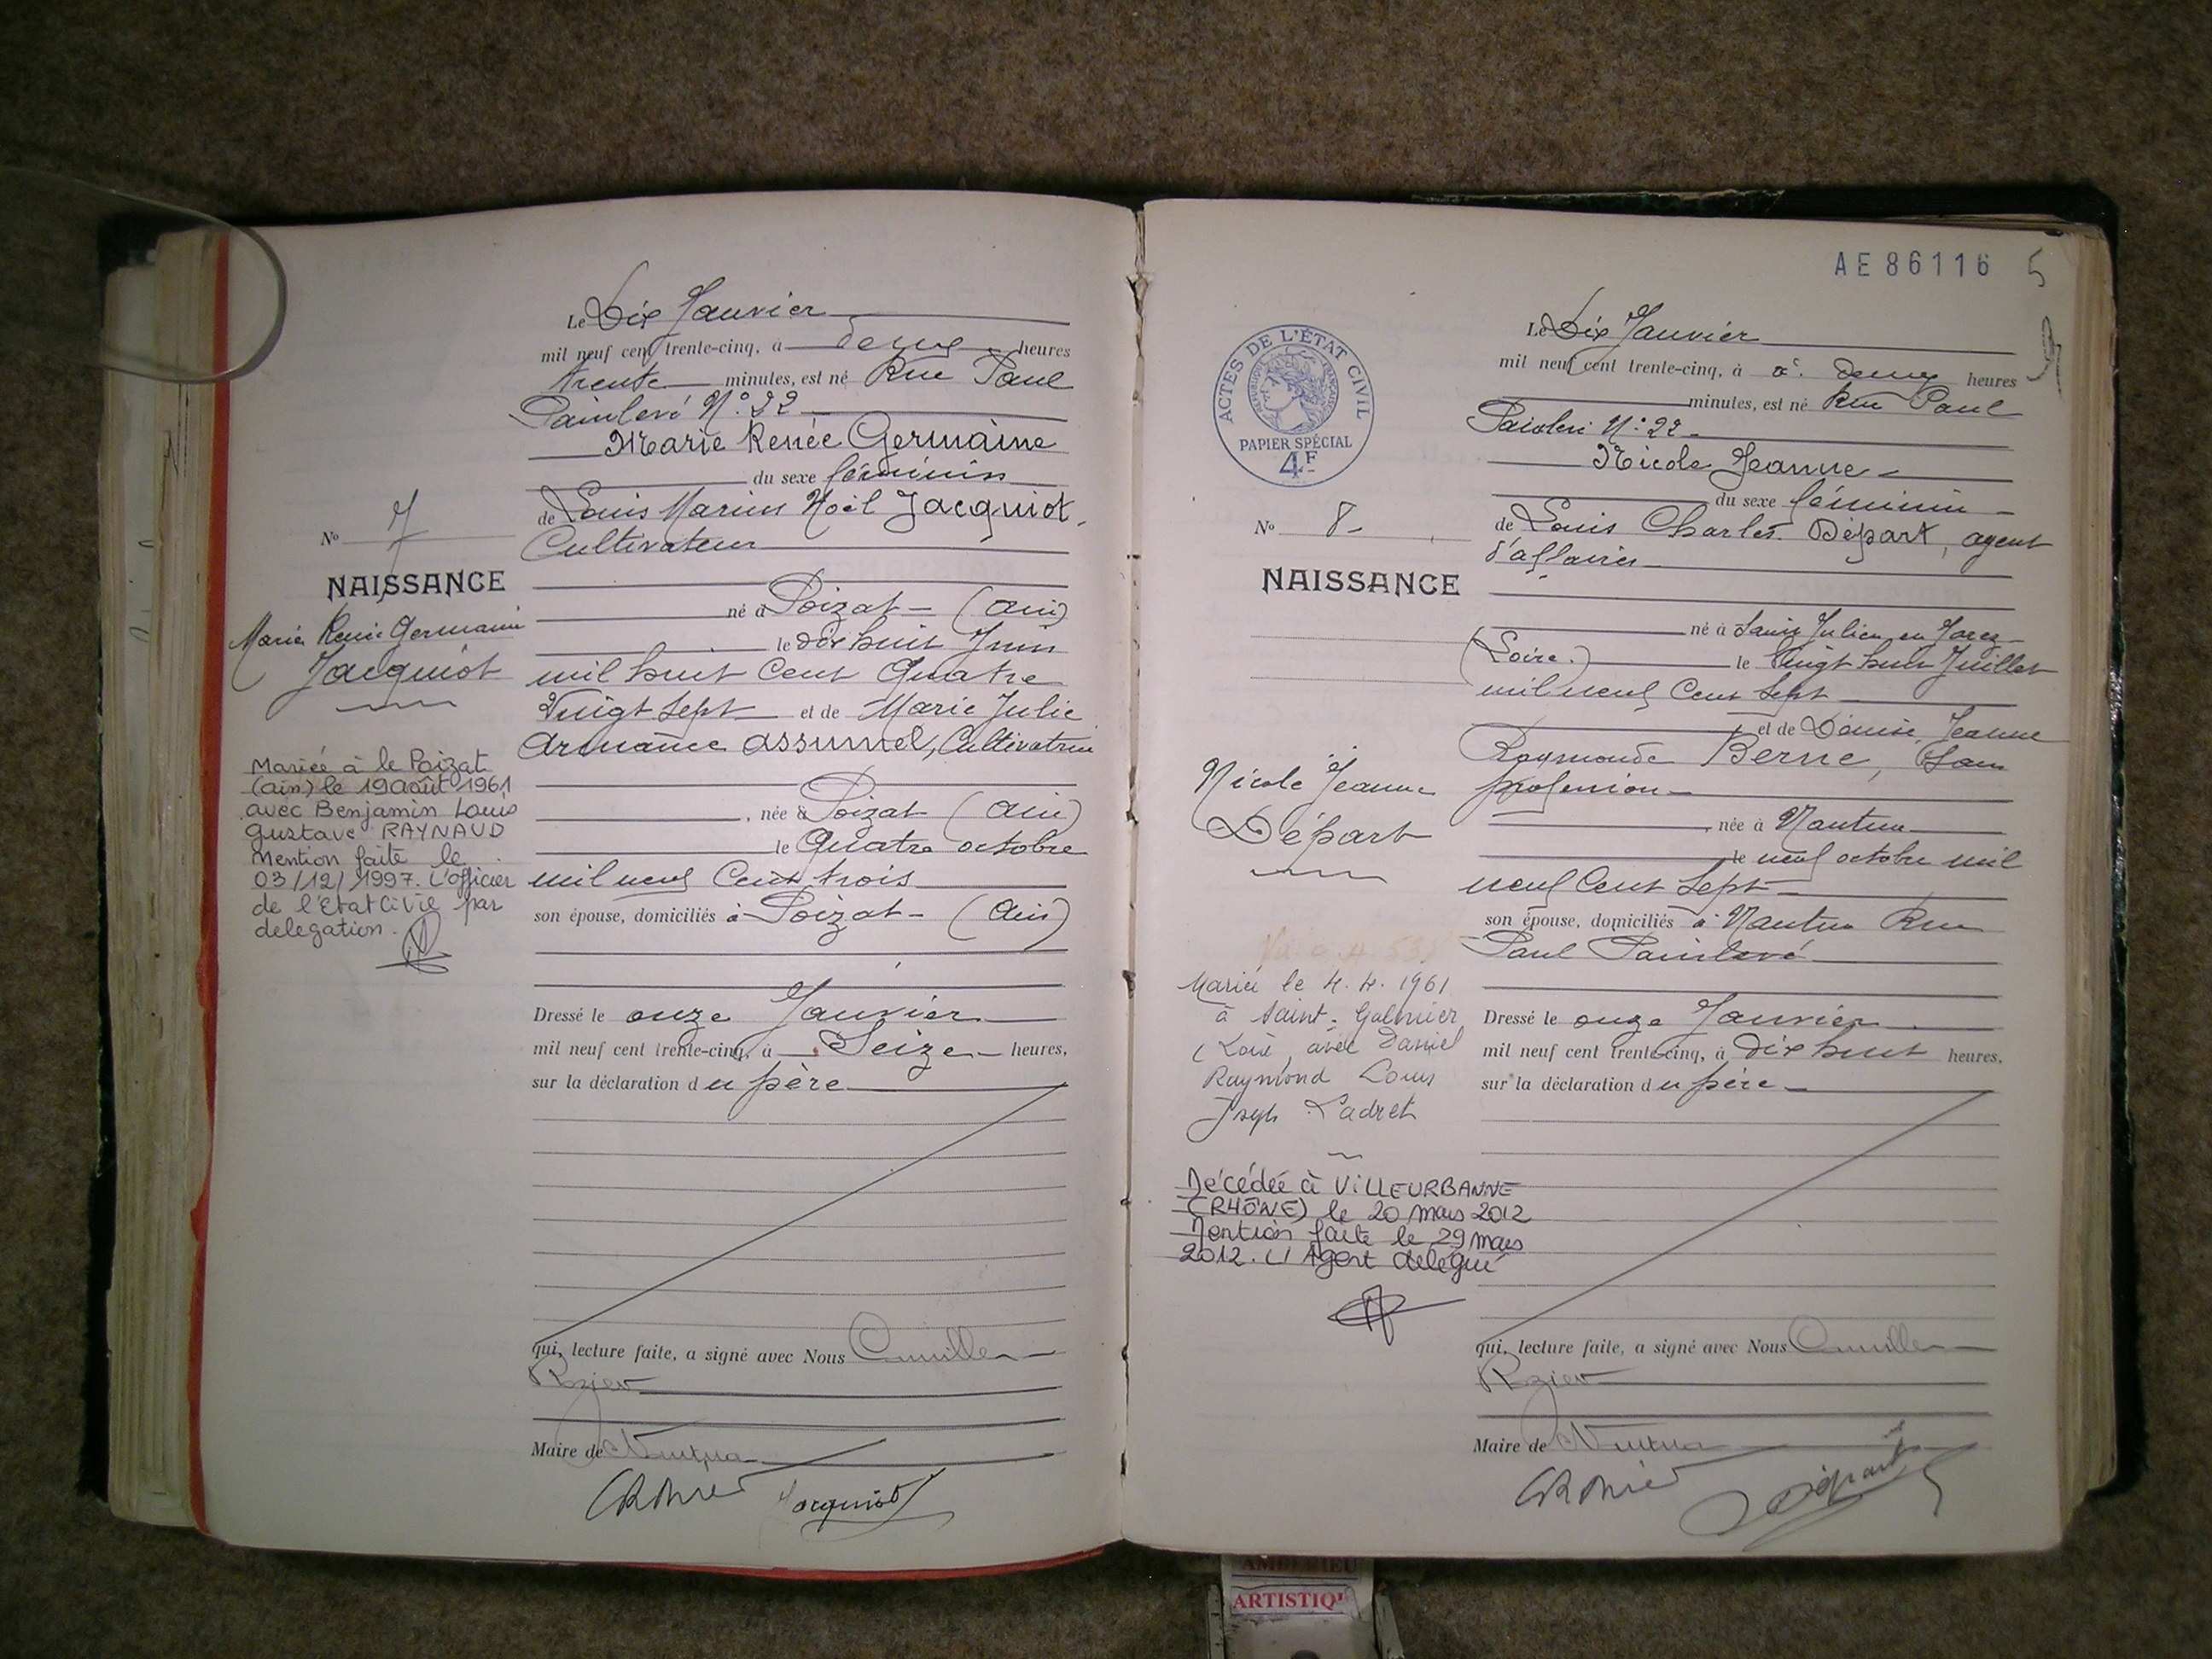 Le Dix Janvier
mil neuf cent trente-cinq, à deux heures
trente minutes, est né Rue Paul
Painlevé N° 22
Marie Renée Germaine
du sexe féminin
de Louis Marius Noël Jacquiot,
Cultivateur
né à Poizat (Ain)
le dix huit Juin
mil huit Cent Quatre
Vingt Sept et de Marie Julie
Armance Assumel, Cultivatrice
née à Poizat (Ain)
le Quatre octobre
mil neuf Cent trois
son épouse, domiciliés à Poizat (Ain)
Dressé le onze Janvier
mil neuf cent trente-cinq, à Seize heures,
sur la déclaration du père
qui, lecture faite, a signé avec Nous Camille
Rozier
Maire de Nantua
CRozier Jacquiot
N° 7
NAISSANCE
Marie Renée Germaine
Jacquiot
Mariée à le Poizat
(ain) le 19 août 1961
avec Benjamin Louis
Gustave RAYNAUD
Mention faite le
03/12/1997. L'officier
de l'Etat Civil par
delegation.
AE86116 5
ACTES DE L'ÉTAT CIVIL
RÉPUBLIQUE FRANÇAISE
PAPIER SPÉCIAL
4F
Le Dix Janvier
mil neuf cent trente-cinq, à deux heures
minutes, est né Rue Paul
N° 22
Nicole Jeanne
du sexe féminin
de Louis Charles Départ, agent
d'affaires
né à Saint Julien en Jarez
(Loire) le Vingt huit Juillet
mil neuf Cent Sept
et de Denise Jeanne
Raymonde Berne, Sans
profession
née à Nantua
le neuf octobre mil
neuf Cent Sept
son épouse, domiciliés à Nantua Rue
Paul Painlevé
Dressé le onze Janvier
mil neuf cent trente-cinq, à dix huit heures,
sur la déclaration du père
qui, lecture faite, a signé avec Nous Camille
Rozier
Maire de Nantua
CRozier Départ
N° 8
NAISSANCE
Nicole Jeanne
Départ
Mariée le 4.4.1961
à Saint-Galmier
(Loire, avec Daniel
Raymond Louis
Joseph Ladret
Décédée à VILLEURBANNE
(RHÔNE) le 20 mars 2012
Mention faite le 29 mars
2012. L'Agent délégué
AMBERIEU
ARTISTIQ